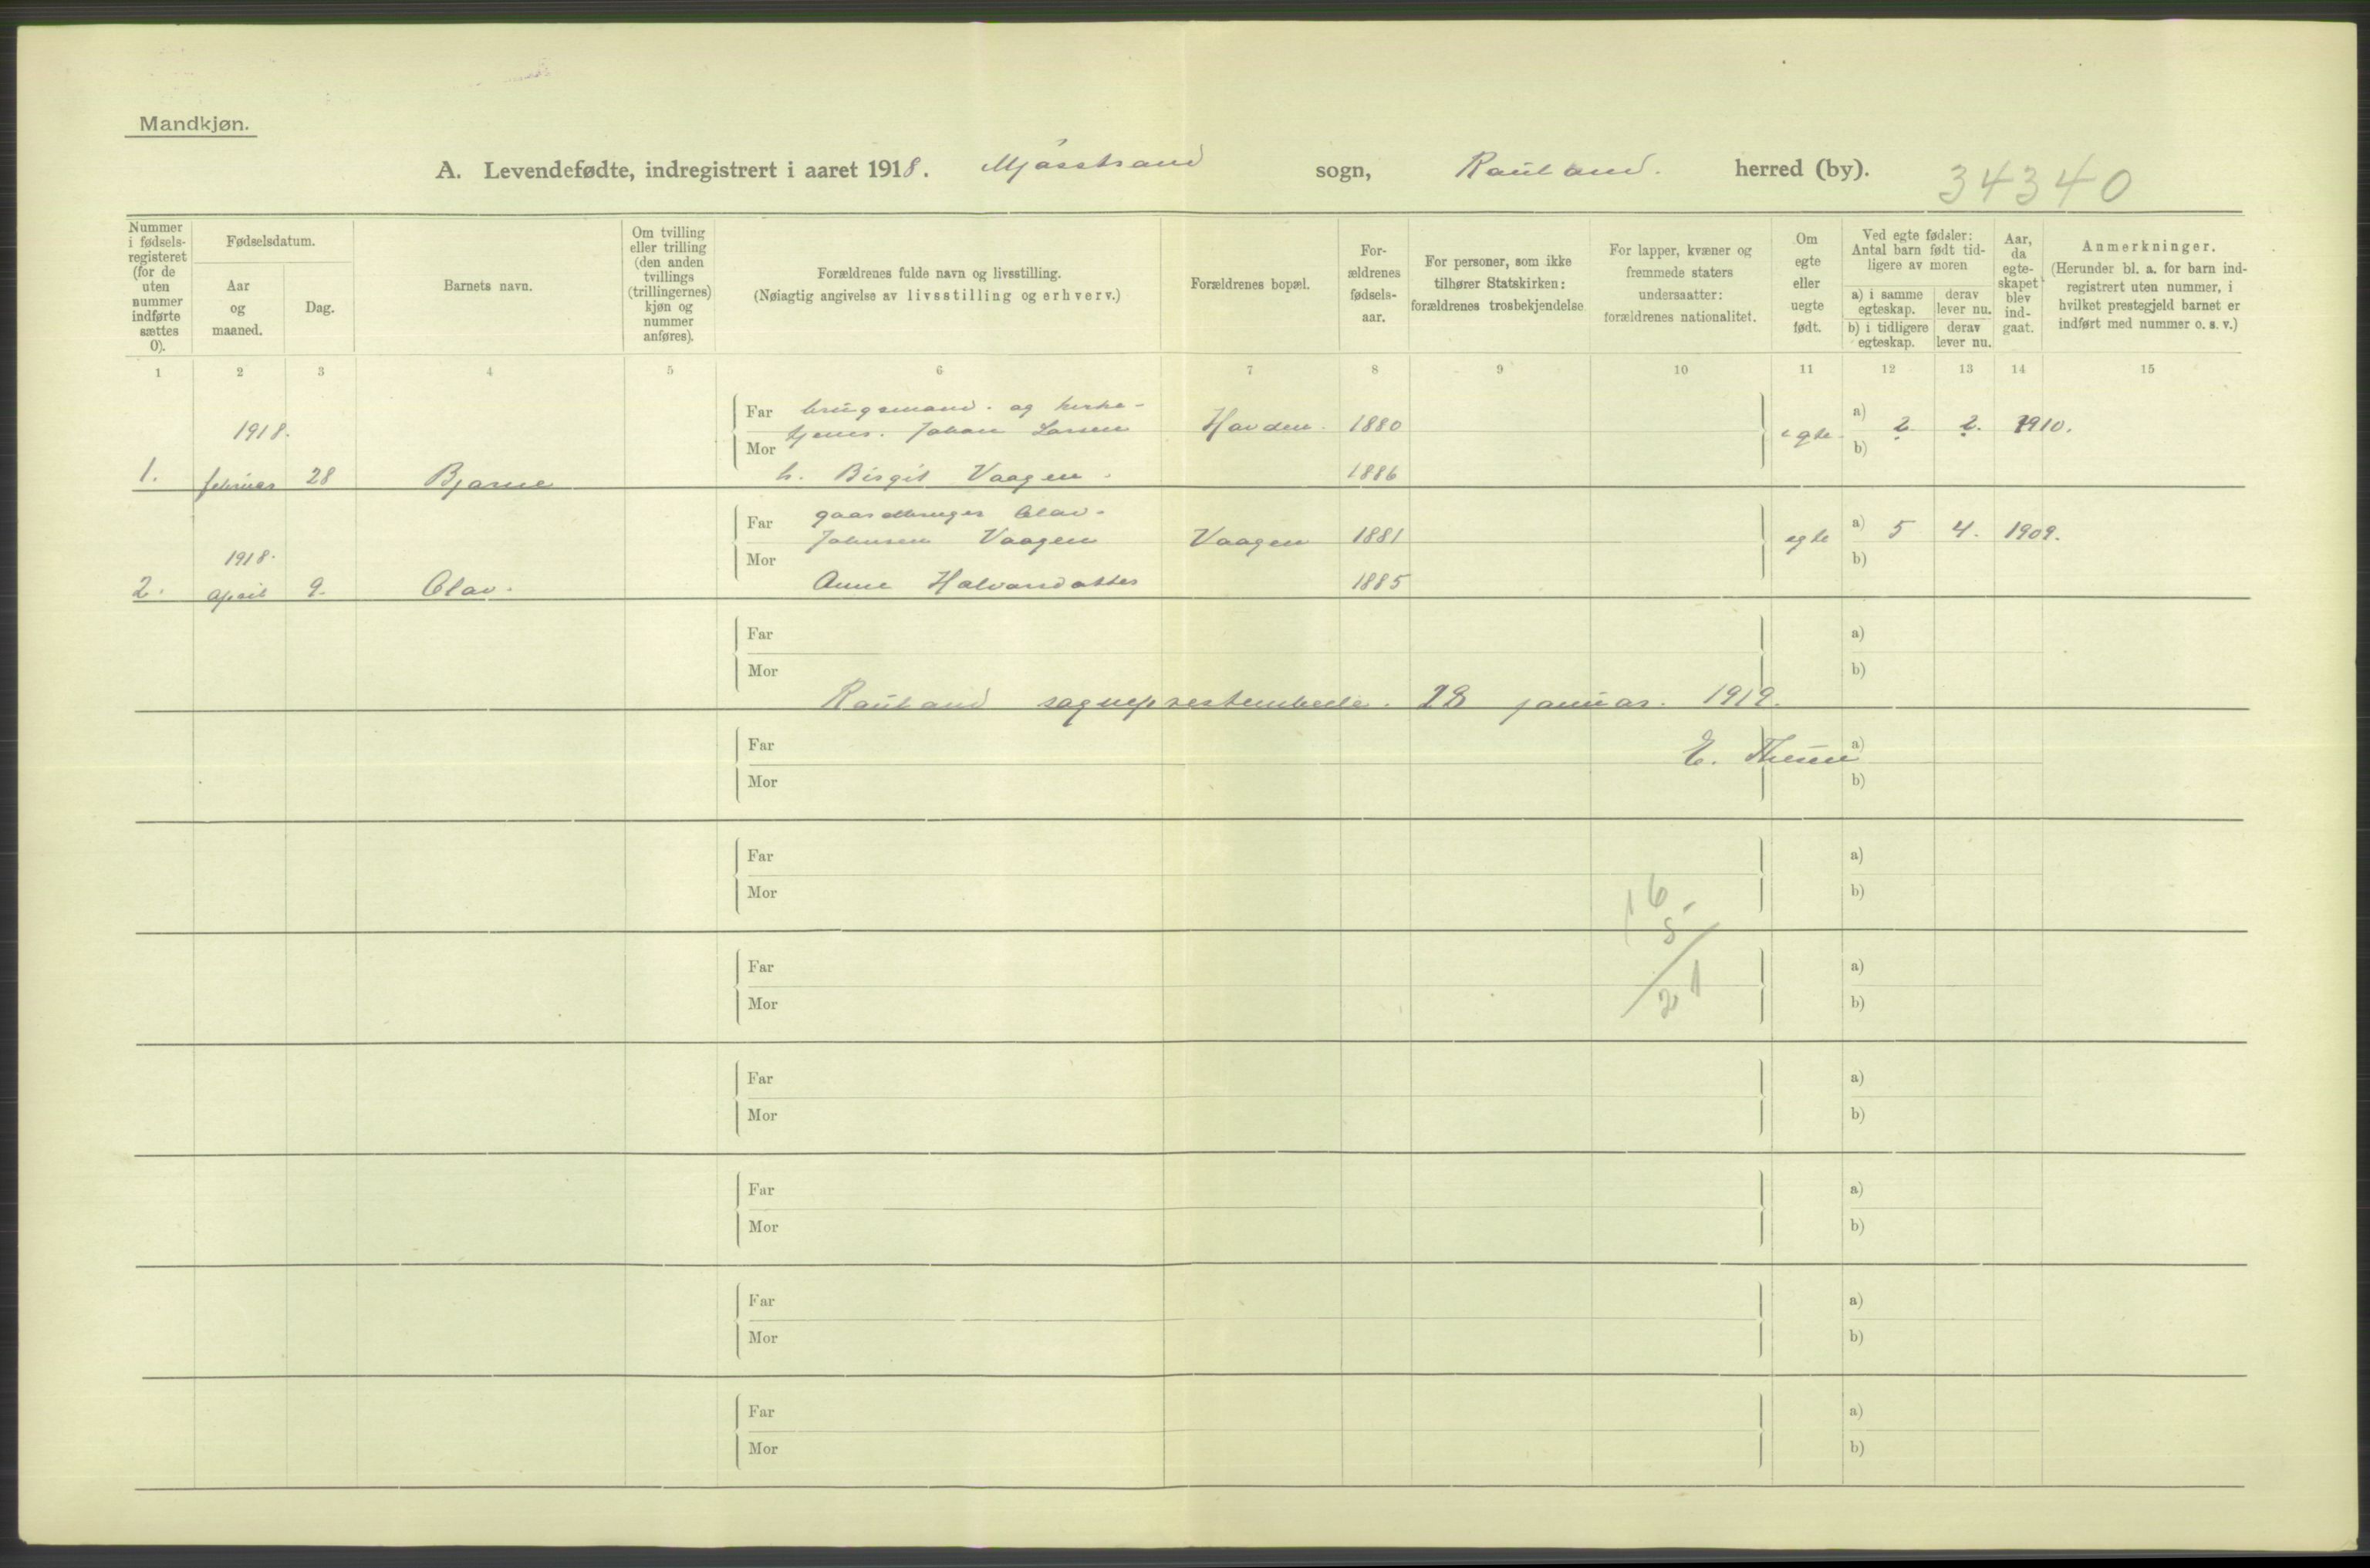 Mandkjøn.
A. Levendefødte, indregistrert i aaret 1918. Mjøsstrand sogn, Rauland. herred (by). 34340
Nummer i fødsels-registeret (for de uten nummer indførte sættes 0).
Fødselsdatum.
Aar og maaned.
Dag.
Barnets navn.
Om tvilling eller trilling (den anden tvillings (trillingernes) kjøn og nummer anføres).
Forældrenes fulde navn og livsstilling.
(Nøiagtig angivelse av livsstilling og erhverv.)
Forældrenes bopæl.
For-ældrenes fødsels-aar.
For personer, som ikke tilhører Statskirken: forældrenes trosbekjendelse
For lapper, kvæner og fremmede staters undersaatter: forældrenes nationalitet.
Om egte eller uegte født.
Ved egte fødsler: Antal barn født tid-ligere av moren
a) i samme egteskap.
derav lever nu.
b) i tidligere egteskap.
derav lever nu.
Aar, da egte-skapet blev ind-gaat.
Anmerkninger.
(Herunder bl. a. for barn ind-registrert uten nummer, i hvilket prestegjeld barnet er indført med nummer o. s. v.)
1 2 3 4 5 6 7 8 9 10 11 12 13 14 15
Far brugsmand. og kirke-
1918. tjener. Johan Larsen Hovden. 1880 egte a) 2 2. 1910.
Mor b)
1. februar 28 Bjarne h. Birgit Vaagen. 1886
Far gaardbruger Olav.
Johnsen Vaagen Vaagen 1881 egte a) 5 4. 1909.
1918. Mor b)
2. april 9. Olav. Anne Halvorsdatter 1885
Far a)
Mor b)
Rauland sogneprestembede. 28 januar. 1919.
Far E. Thesen a)
Mor b)
Far a)
Mor b)
16
5
Far a)
21
Mor b)
Far a)
Mor b)
Far a)
Mor b)
Far a)
Mor b)
Far a)
Mor b)